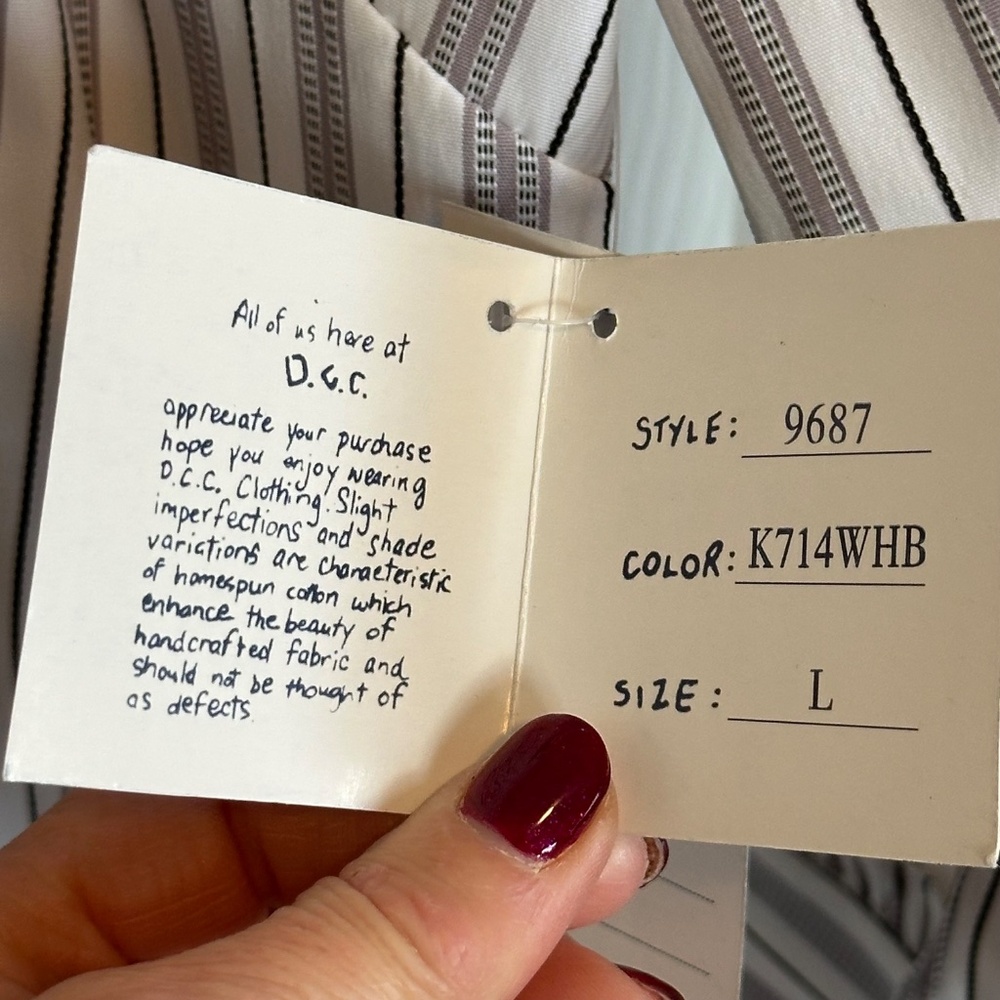 All of us here at
D.C.C.
appreciate your purchase
hope you enjoy wearing
D.C.C. Clothing. Slight
imperfections and shade
variations are characteristic
of homespun cotton which
enhance the beauty of
handcrafted fabric and
should not be thought of
as defects.
STYLE: 9687
COLOR: K714WHB
SIZE: L